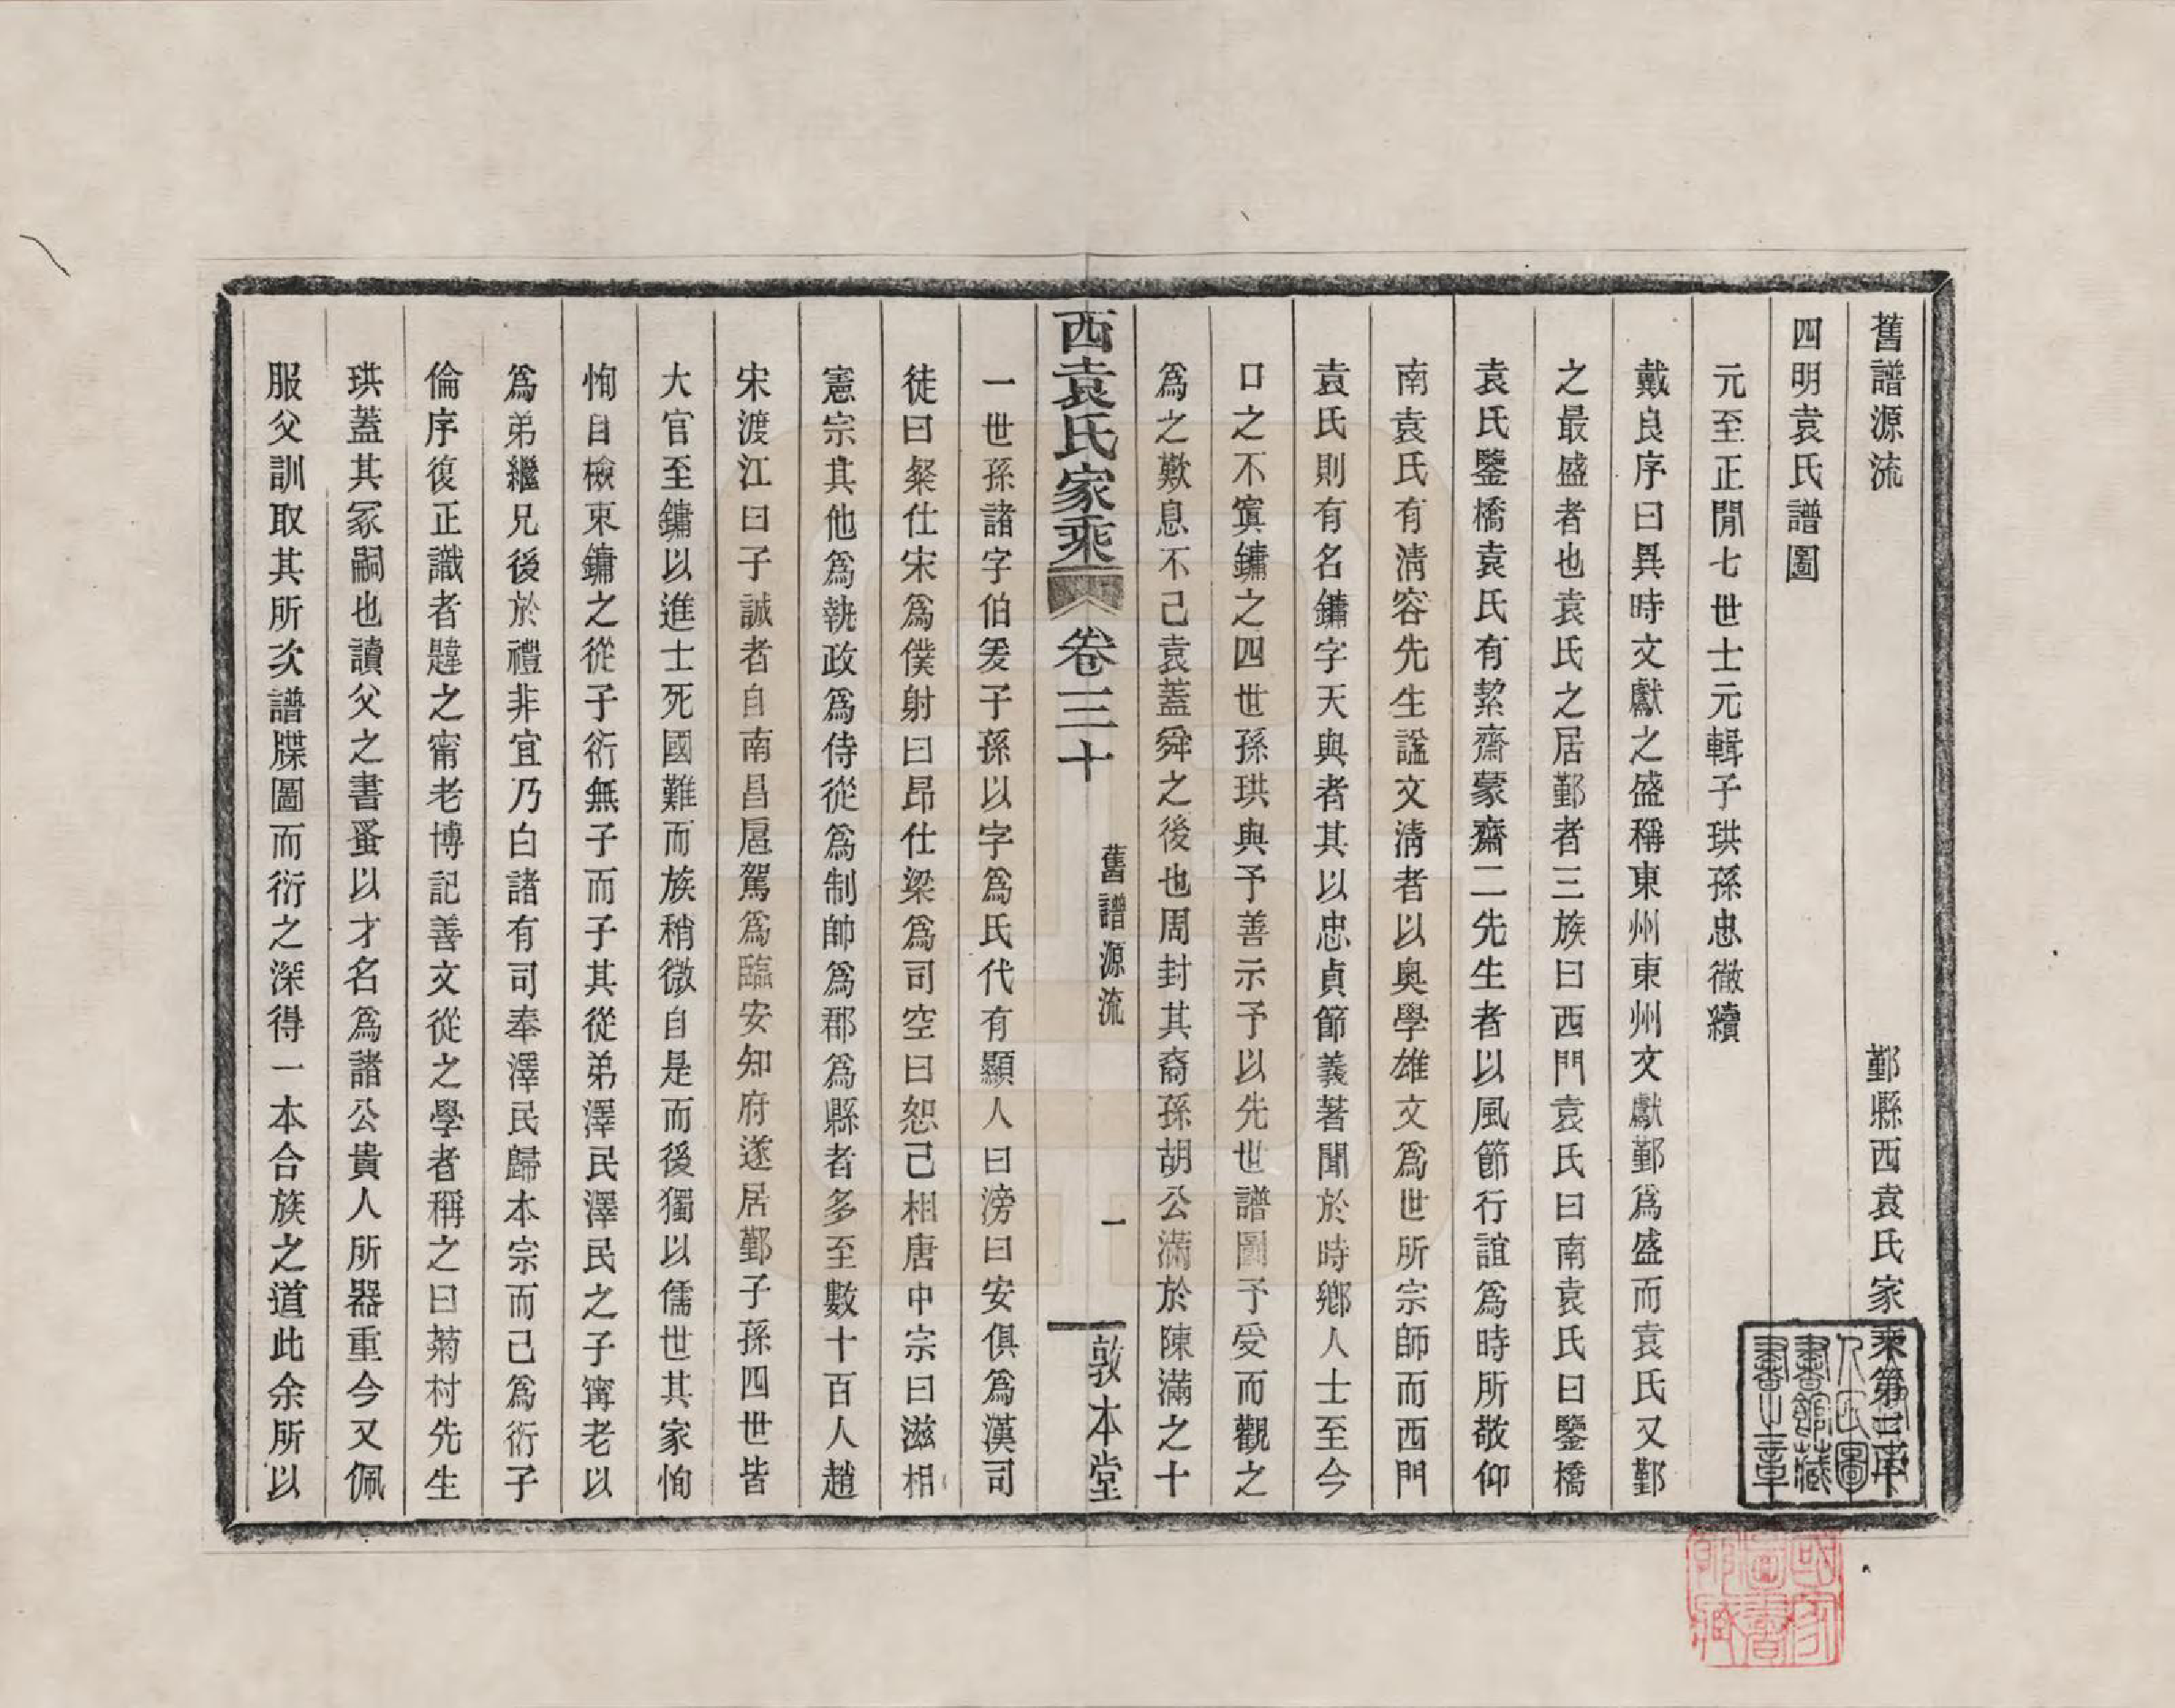 舊譜源流　鄞縣西袁氏家乘第三十
四明袁氏譜圖
元至正閒七世士元輯子珙孫忠徹續
戴良序曰異時文獻之盛稱東州東州文獻鄞爲盛而袁氏又鄞
之最盛者也袁氏之居鄞者三族曰西門袁氏曰南袁氏曰鑒橋
袁氏鑒橋袁氏有絜齋蒙齋二先生者以風節行誼爲時所敬仰
南袁氏有清容先生謚文清者以奧學雄文爲世所宗師而西門
袁氏則有名鏞字天與者其以忠貞節義著聞於時鄉人士至今
口之不寘鏞之四世孫珙與予善示予以先世譜圖予受而觀之
爲之歎息不已袁蓋舜之後也周封其裔孫胡公滿於陳滿之十
西袁氏家乘　卷三十　舊譜源流　一　敦本堂
一世孫諸字伯爰子孫以字爲氏代有顯人曰滂曰安俱爲漢司
徒曰粲仕宋爲僕射曰昂仕梁爲司空曰恕己相唐中宗曰滋相
憲宗其他爲執政爲侍從爲制帥爲郡爲縣者多至數十百人趙
宋渡江曰子誠者自南昌扈駕爲臨安知府遂居鄞子孫四世皆
大官至鏞以進士死國難而族稍微自是而後獨以儒世其家恂
恂自檢束鏞之從子衍無子而子其從弟澤民澤民之子寗老以
爲弟繼兄後於禮非宜乃白諸有司奉澤民歸本宗而己爲衍子
倫序復正識者韙之甯老博記善文從之學者稱之曰菊村先生
珙蓋其冢嗣也讀父之書蚤以才名爲諸公貴人所器重今又佩
服父訓取其所次譜牒圖而衍之深得一本合族之道此余所以
人民圖
書館藏
書之章
國家
圖書
館藏